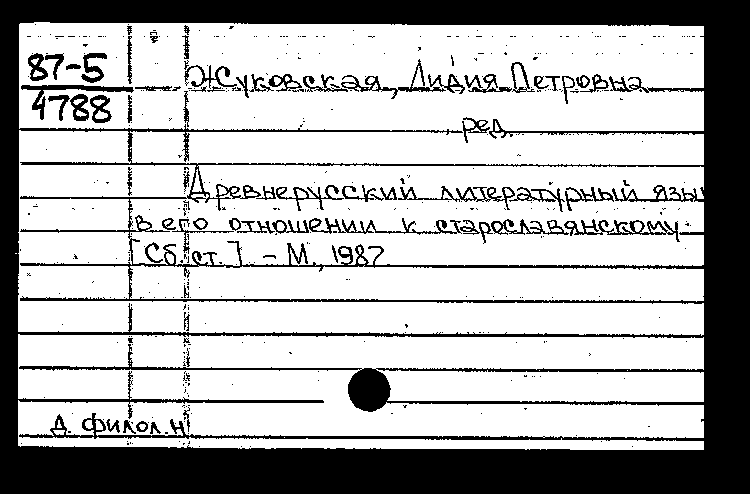 87-5
4788
Жуковская, Лидия Петровна
ред.
Древнерусский литературный язы
в его отношении к старославянскому.
[Сб. ст.]. – М., 1987
Д. филол. н